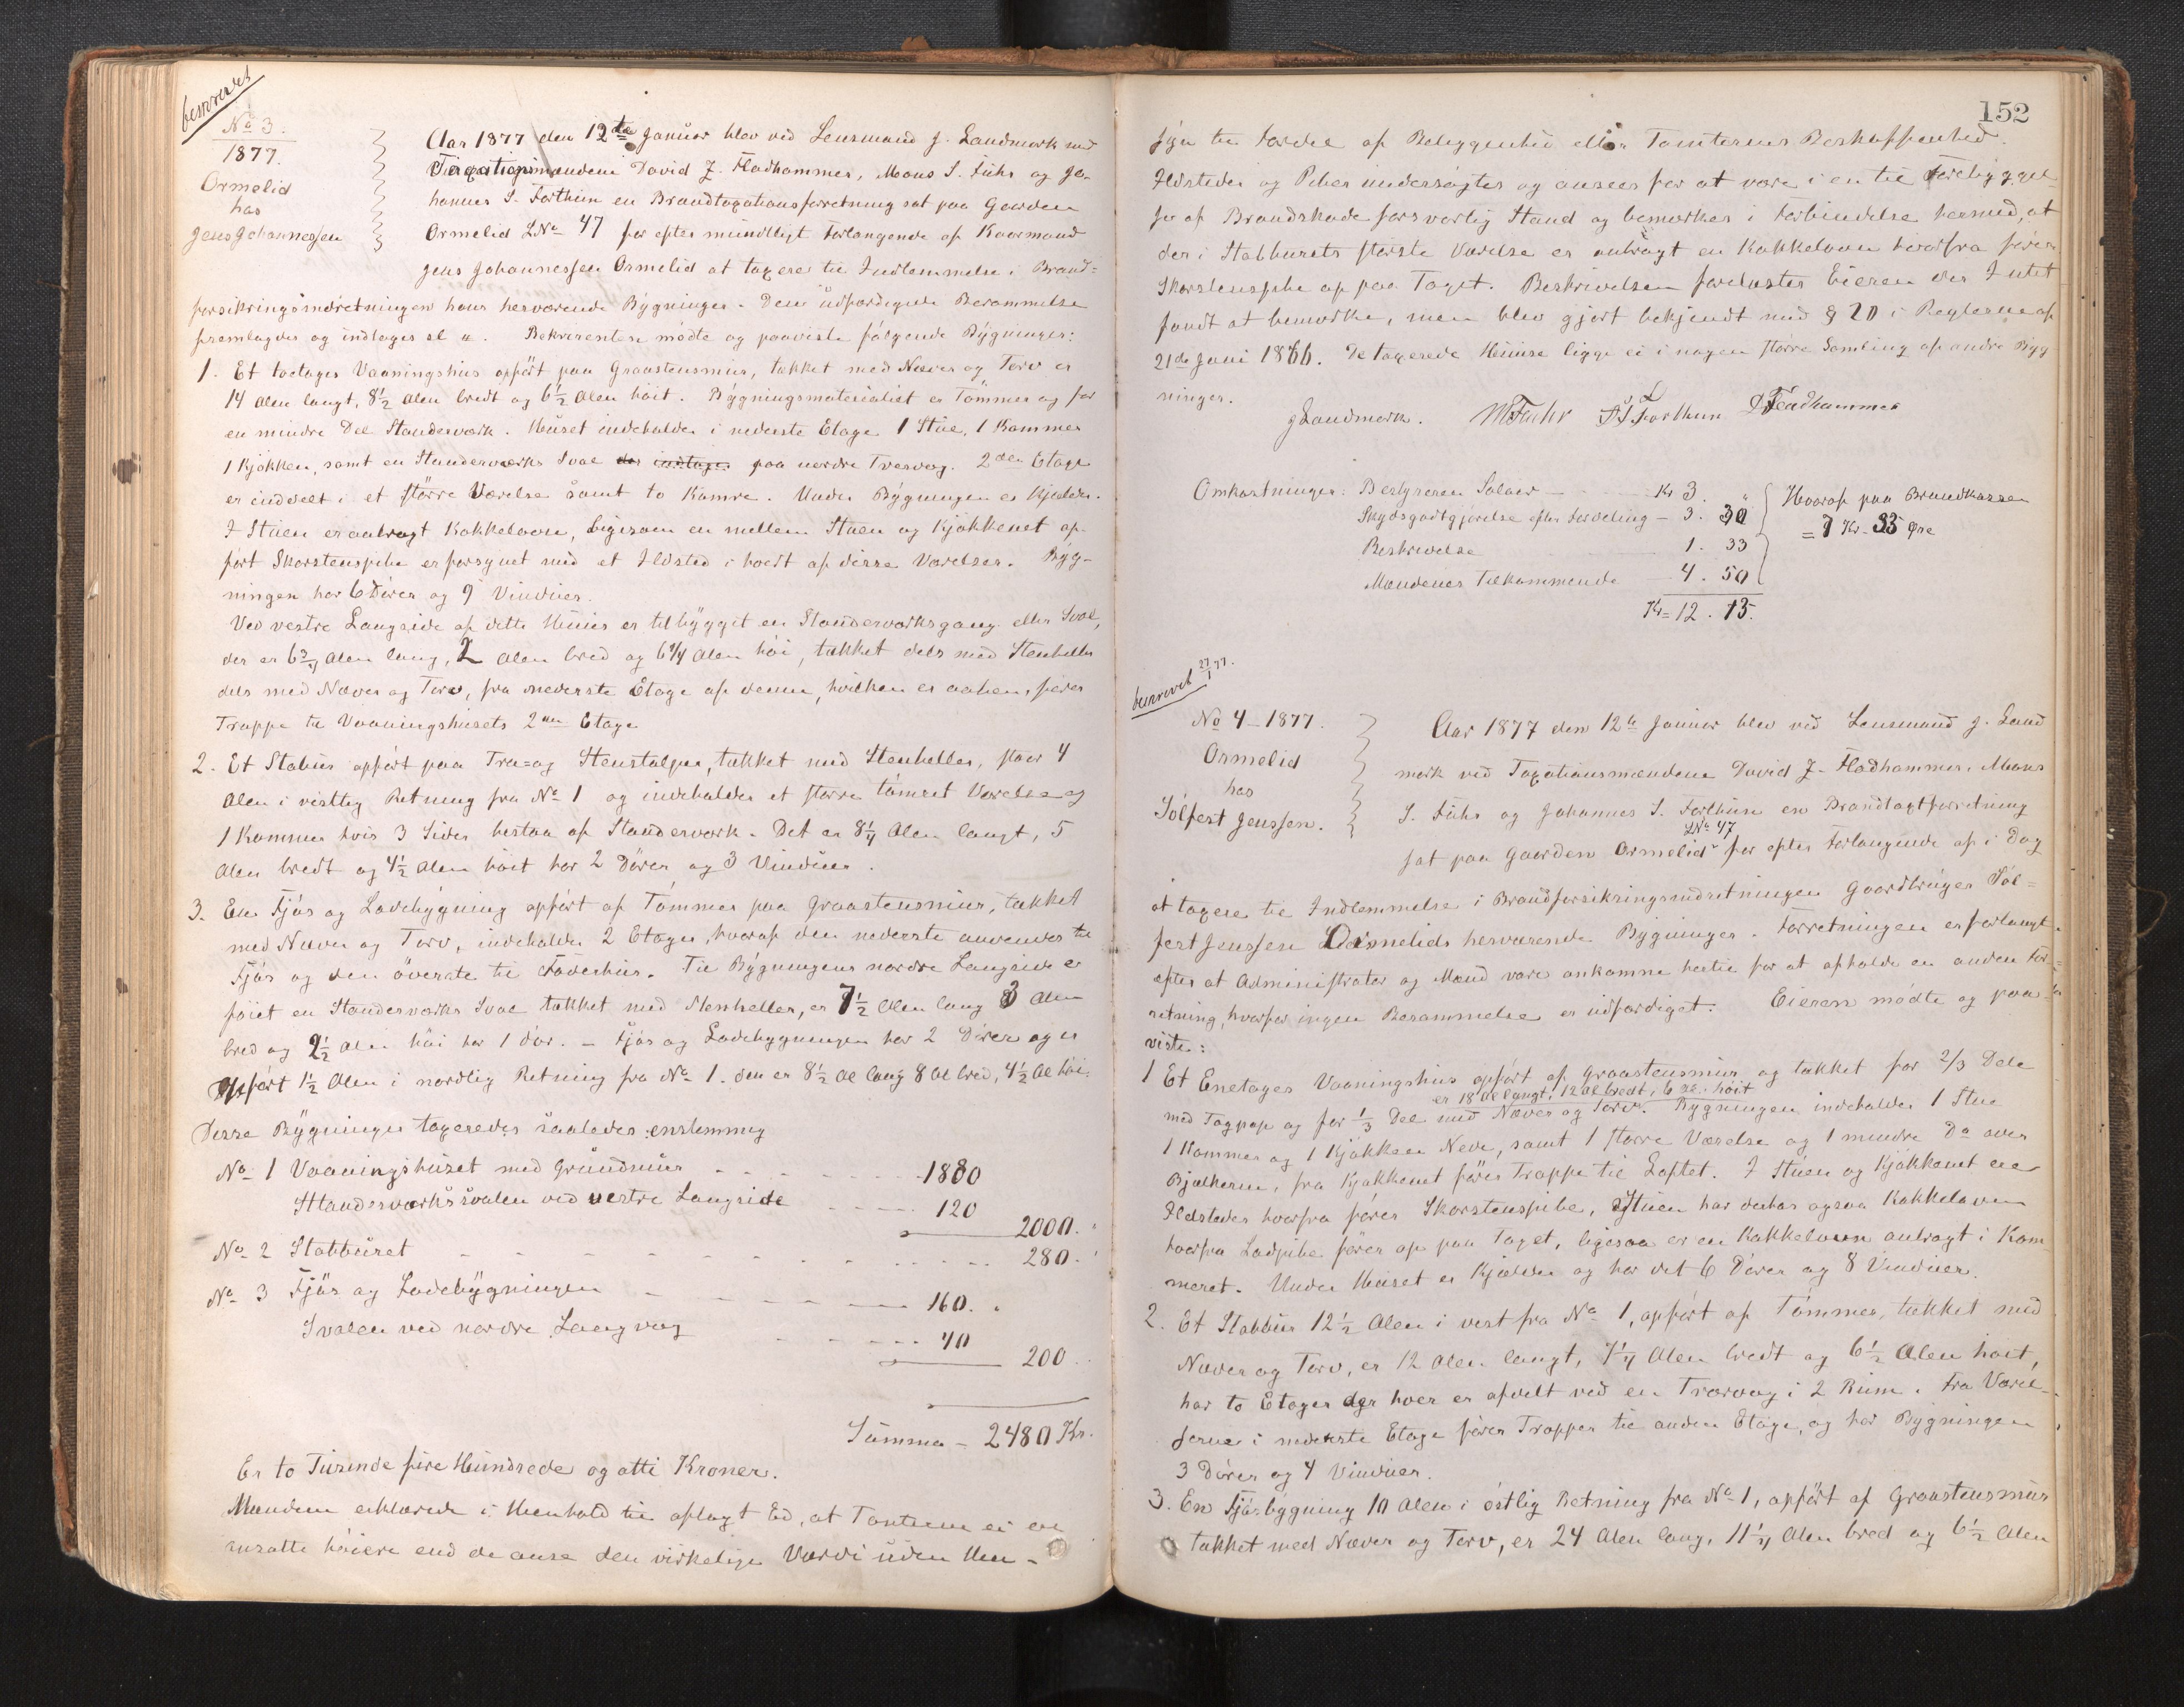 beskrevet
No 3.
1877.
Ormelid
hos
Jens Johannessen
Aar 1877 den 12te Januar blev ved Lensmand J. Landmark med
Taxationsmændene David J. Fladhammer, Mons S. Fuhr og Jo-
hannes S. Forthun en Brandtaxationsforretning sat paa Gaarden
Ormelid LNo 47 for efter mundtligt Forlangende af Kaarmand
Jens Johannessen Ormelid at taxere til Indlemmelse i Brand=
forsikringsindretningen hans herværende Bygninger. Den udfærdigede Berammelse
fremlagdes og indtages sl a. Rekvirenten mødte og paaviste følgende Bygninger:
1. Et toetages Vaaningshus opført paa Graastensmur, tækket med Næver og Torv er
14 Alen langt, 8½ Alen bredt og 6½ Alen høit. Bygningsmaterialiet er Tømmer og for
en mindre Del Standerværk. Huset indeholder i nederste Etage 1 Stue, 1 Kammer
1 Kjøkken, samt en Standerværks Sval der indtages paa nordre Tvervæg. 2den Etage
er inddelt i et større Værelse samt to Kamre. Under Bygningen er Kjælder.
I Stuen er anbragt Kakkelovn, ligesom en mellem Stuen og Kjøkkenet op-
ført Skorstenspibe er forsynet med et Ildsted i hvert af disse Værelser. Byg-
ningen har 6 Dører og 9 Vinduer.
Ved vestre Langside af dette Huus er tilbygget en Standerværksgang eller Sval,
der er 6¾ Alen lang, 2 Alen bred og 6¼ Alen høi, tækket dels med Stenheller
dels med Næver og Torv, fra nederste Etage af denne, hvilken er aaben, fører
Trappe til Vaaningshusets 2den Etage
2. Et Stabur opført paa Træ= og Stenstolper, tækket med Stenheller, staar 4
Alen i vestlig Retning fra No 1 og indeholder et større tømret Værelse og
1 Kammer hvis 3 Sider bestaa af Standerværk. Det er 8¼ Alen langt, 5
Alen bredt og 4½ Alen høit har 2 Dører og 3 Vinduer.
3. En Fjøs og Ladebygning opført af Tømmer paa Graastensmur, tækket
med Næver og Torv, indeholder 2 Etager, hvoraf den nederste anvendes til
Fjøs og den øverste til Foderhus. Til Bygningens nordre Langside er
føiet en Standerværks Sval tækket med Stenheller, er 7½ Alen lang 3 Alen
bred og 2½ Alen høi har 1 Dør. – Fjøs og Ladebygningen har 2 Dører og er
opført 1½ Alen i nordlig Retning fra No 1. den er 8½ Al lang 8 Al bred, 4½ Al høi.
Disse Bygninger taxeredes saaledes enstemmig
No 1 Vaaningshuset med Grundmur 1880
Standerværkssvalen ved vestre Langside 120
2000.
No 2 Stabburet 280.
No 3 Fjøs og Ladebygningen 160.
Svalen ved nordre Langvæg 40
200.
Summa – 2480 Kr.
Er to Tusinde fire Hundrede og otti Kroner.
Mændene erklærede i Henhold til aflagt Ed, at Taxterne ei ere
ansatte høiere end de anse den virkelige Værdi uden Hen-
152
syn til Fordel af Beliggenhed eller Tomternes Beskaffenhed.
Ildsteder og Piber undersøgtes og ansees for at være i en til Forebyggel-
se af Brandskade forsvarlig Stand og bemærkes i Forbindelse hermed, at
der i Stabburets største Værelse er anbragt en Kakkelovn hvorfra fører
Skorstenspibe op paa Taget. Beskrivelsen forelæstes Eieren der Intet
fandt at bemærke, men blev gjort bekjendt med § 20 i Reglerne af
21de Juni 1866. De taxerede Huuse ligge ei i nogen større Samling af andre Byg
ninger.
J Landmark. M S Fuhr J S Forthun D J Fladhammer
Omkostninger: Bestyreren Salær – Kr 3. "
Skydsgodtgjørelse efter Fordeling – 3. 30
Beskrivelse 1. 33
Mændenes Tilkommende 4. 50
Kr = 12. 13.
Hvoraf paa Brandkassen
= 7 Kr. 33 Øre
beskrevet 27/1 77.
No 4 – 1877.
Ormelid
hos
Solfest Jenssen.
Aar 1877 den 12te Januar blev ved Lensmand J. Land
mark ved Taxationsmændene David J. Fladhammer, Mons
S. Fuhr og Johannes S. Forthun en Brandtaxtforretning
LNo 47
sat paa Gaarden Ormelid for efter Forlangende af i Dag
at taxere til Indlemmelse i Brandforsikringsindretningen Gaardbruger Sol=
fest Jenssen Ormelids herværende Bygninger. Forretningen er forlangt
efter at Administrator og Mænd vare ankomne hertil for at afholde en anden For-
retning, hvorfor ingen Berammelse er udfærdiget. Eieren mødte og paa-
viste:
1 Et Enetages Vaaningshus opført af Graastensmur og tækket for 2/3 Dele
er 18 Al langt, 12 Al bredt, 6 Al. høit
med Tagpap og for 1/3 Del med Næver og Torv. Bygningen indeholder 1 Stue
1 Kammer og 1 Kjøkken Nede, samt 1 større Værelse og 1 mindre Do over
Bjælkerne, fra Kjøkkenet fører Trappe til Loftet. I Stuen og Kjøkkenet ere
Ildsteder hvorfra fører Skorstenspibe, Stuen har derhos ogsaa Kakkelovn
hvorfra Ladpibe fører op paa Taget, ligesaa er en Kakkelovn anbragt i Kam
meret. Under Huset er Kjælder og har det 6 Dører og 8 Vinduer.
2. Et Stabbur 12½ Alen i vest fra No 1, opført af Tømmer, tækket med
Næver og Torv, er 12 Alen langt, 7¼ Alen bredt og 6½ Alen høit,
har to Etager der hver er afdelt ved en Tværvæg i 2 Rum. Fra Værel-
serne i nederste Etage fører Trapper til anden Etage, og har Bygningen
3 Dører og 4 Vinduer.
3. En Fjøsbygning 10 Alen i østlig Retning fra No 1, opført af Graastensmur
tækket med Næver og Torv, er 24 Alen lang, 11¼ Alen bred og 6½ Alen